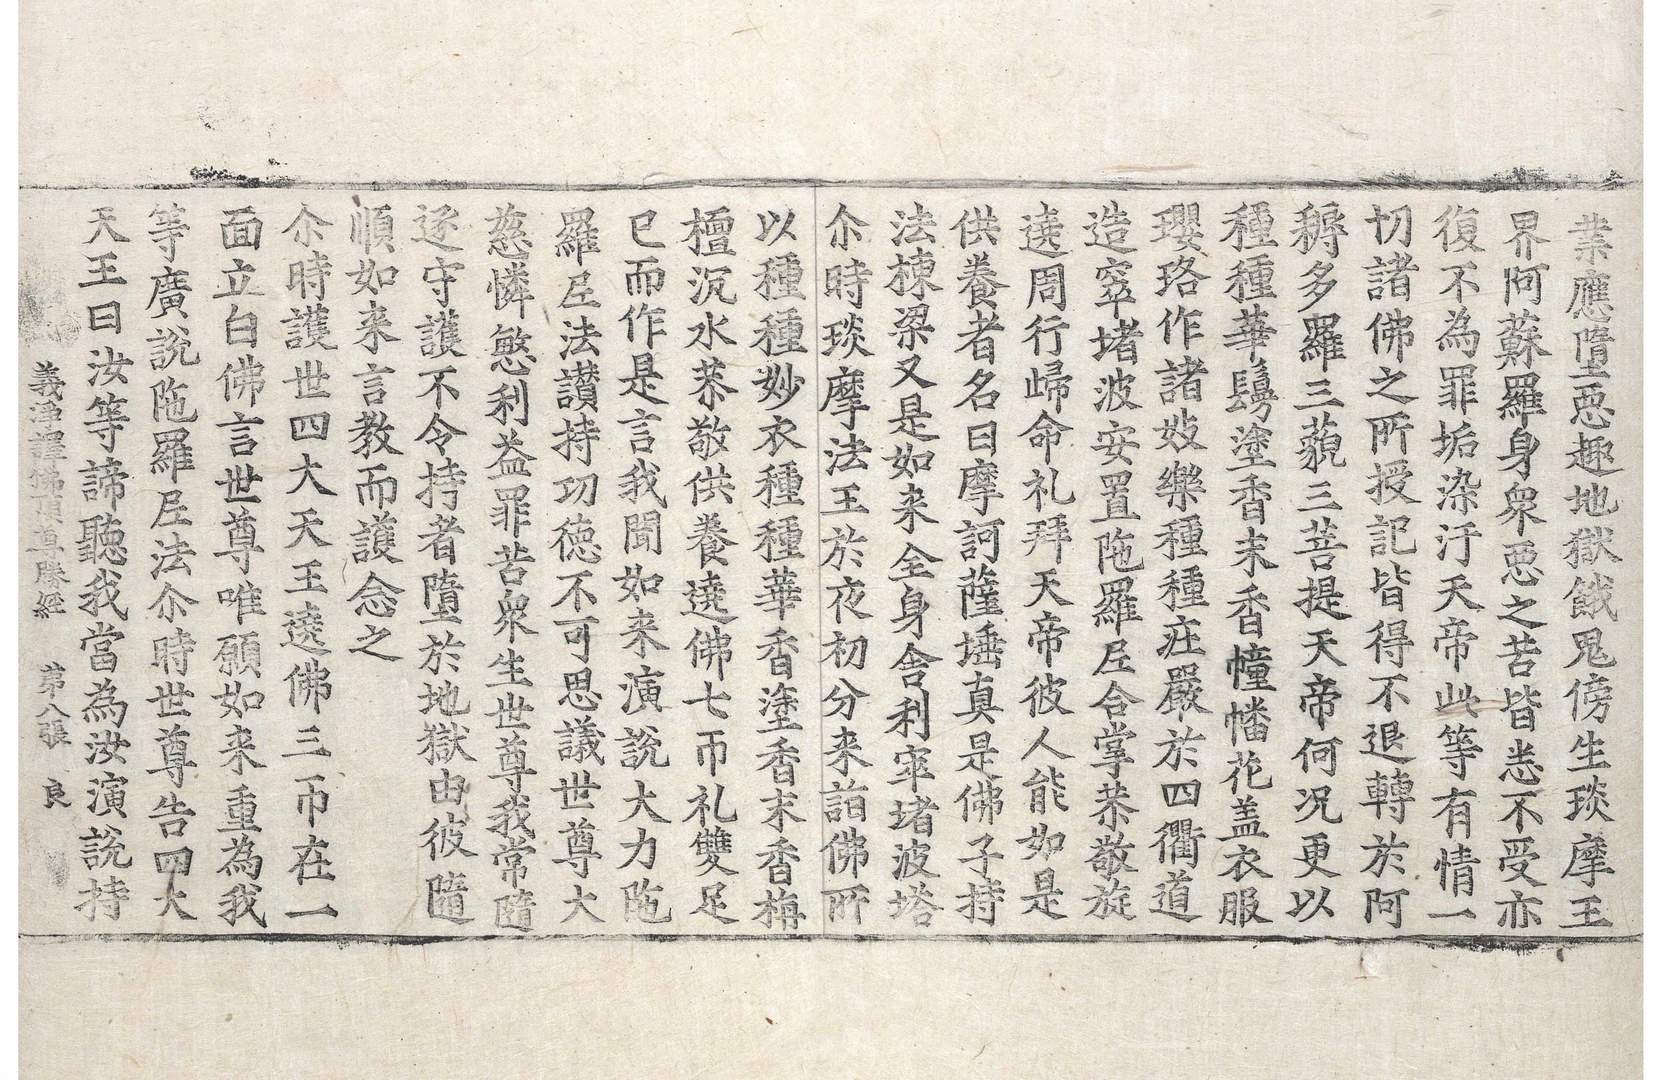 業應墮惡趣地獄餓鬼傍生琰摩王
界阿蘇羅身衆惡之苦皆悉不受亦
復不為罪垢染汙天帝此等有情一
切諸佛之所授記皆得不退轉於阿
耨多羅三藐三菩提天帝何况更以
種種華鬘塗香末香幢幡花盖衣服
瓔珞作諸妓樂種種莊嚴於四衢道
造窣堵波安置陁羅尼合掌恭敬旋
遶周行歸命礼拜天帝彼人能如是
供養者名曰摩訶薩埵真是佛子持
法棟梁又是如来全身舍利窣堵波塔
尒時琰摩法王於夜初分来詣佛所
以種種妙衣種種華香塗香末香栴
檀沉水恭敬供養遶佛七帀礼雙足
已而作是言我聞如来演說大力陁
羅尼法讃持功徳不可思議世尊大
慈憐愍利益罪苦衆生世尊我常隨
逐守護不令持者墮於地獄由彼隨
順如来言教而護念之
尒時護世四大天王遶佛三帀在一
面立白佛言世尊唯願如来重為我
等廣說陁羅尼法尒時世尊告四大
天王曰汝等諦聽我當為汝演說持
義淨譯佛頂尊勝經　第八張　良